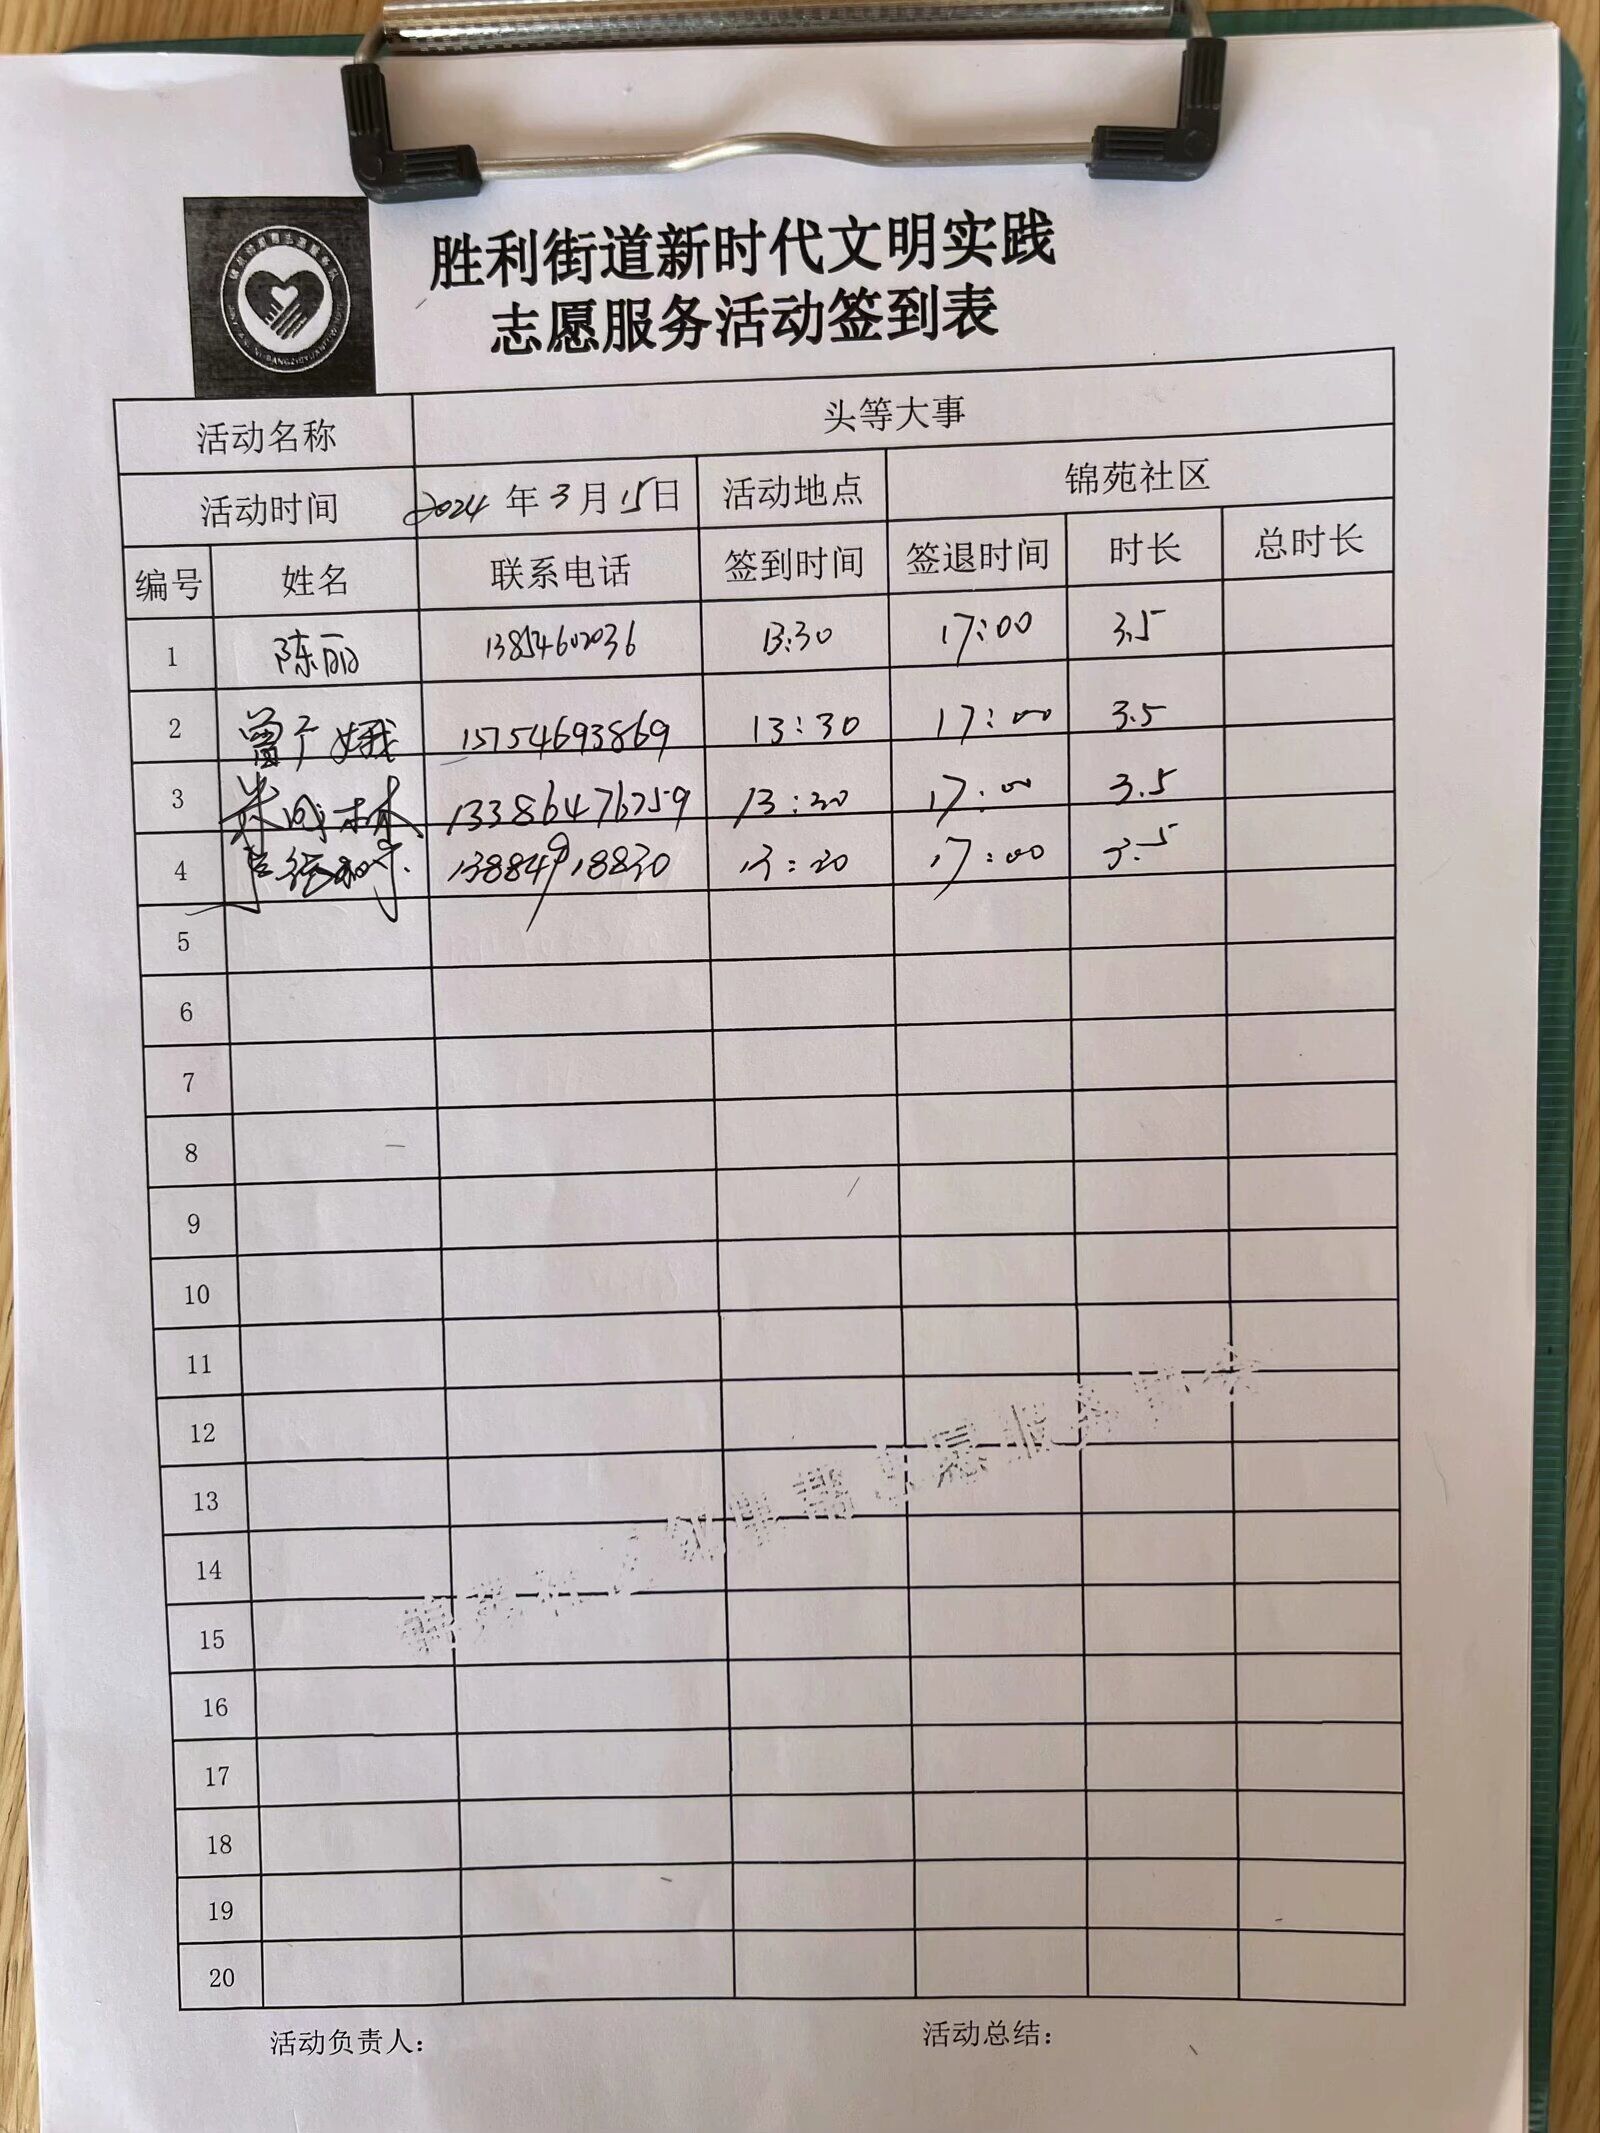 胜利街道新时代文明实践
志愿服务活动签到表
活动名称 头等大事
活动时间 2024年3月15日 活动地点 锦苑社区
编号 姓名 联系电话 签到时间 签退时间 时长 总时长
1 陈丽 13854602036 13:30 17:00 3.5
2 15754693869 13:30 17:00 3.5
3 13386476759 13:30 17:00 3.5
4 13884918830 13:30 17:00 3.5
5
6
7
8
9
10
11
12
13
14
15
16
17
18
19
20
活动负责人: 活动总结: